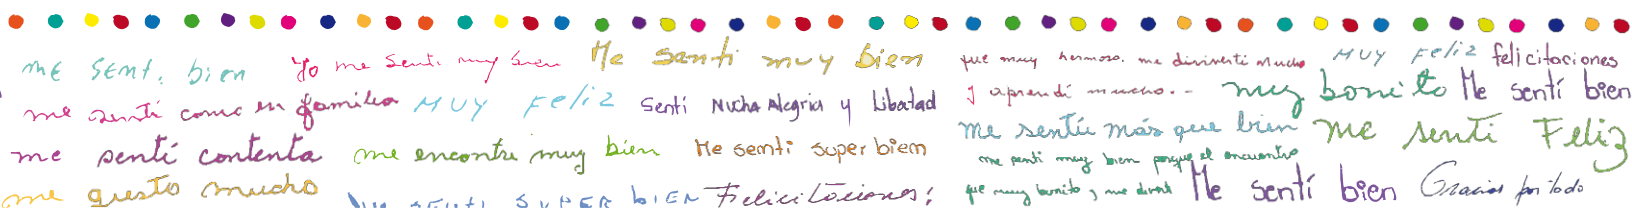 me sentí bien
Yo me Sentí muy bien
Me sentí muy bien
que muy hermoso. me divirertí mucho
y aprendí mucho...
MUY FeLiz
felicitaciones
me sentí como en familia
MUY FeLiz
Sentí Mucha Alegria y Libertad
muy bonito
Me sentí bien
me sentí más que bien
me sentí Feliz
me sentí contenta
me encontre muy bien
Me semti super biem
me senti muy bien porque el encuentro
fue muy bonito y me divertí
me gusto mucho
Me SENTI SUPER biEN
Felicitaciones!
Me sentí bien
Gracias por todo